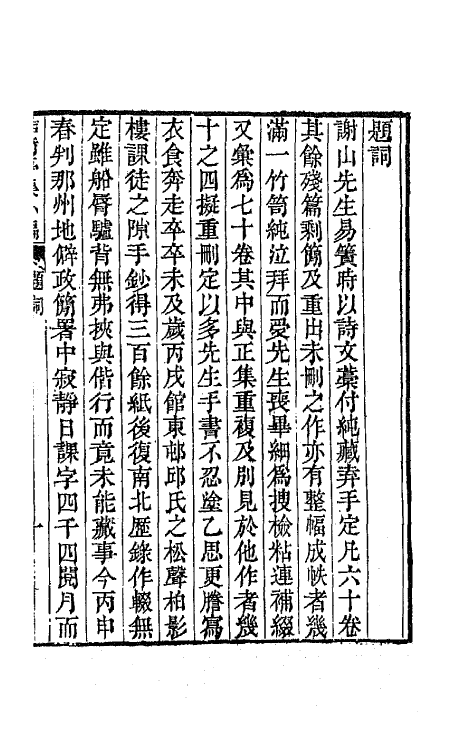 題詞
謝山先生易簀時以詩文藁付純藏弆手定凡六十卷
其餘殘篇剩簡及重出未刪之作亦有整幅成帙者幾
滿一竹笥純泣拜而受先生喪畢細爲搜檢粘連補綴
又彙爲七十卷其中與正集重複及別見於他作者幾
十之四擬重刪定以多先生手書不忍塗乙思更謄寫
衣食奔走卒卒未及歲丙戌館東邨邱氏之松聲柏影
樓課徒之隙手鈔得三百餘紙後復南北歷錄作輟無
定雖船脣驢背無弗挾與偕行而竟未能蕆事今丙申
春判那州地僻政簡署中寂靜日課字四千四閱月而
題詞
一